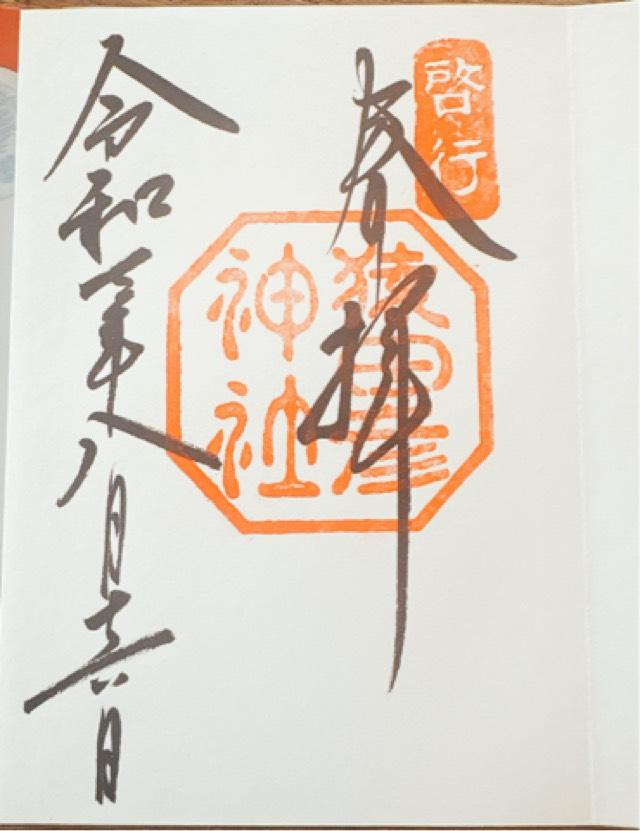 啓行
奉拝
猿田彦
神社
令和年八月十六日